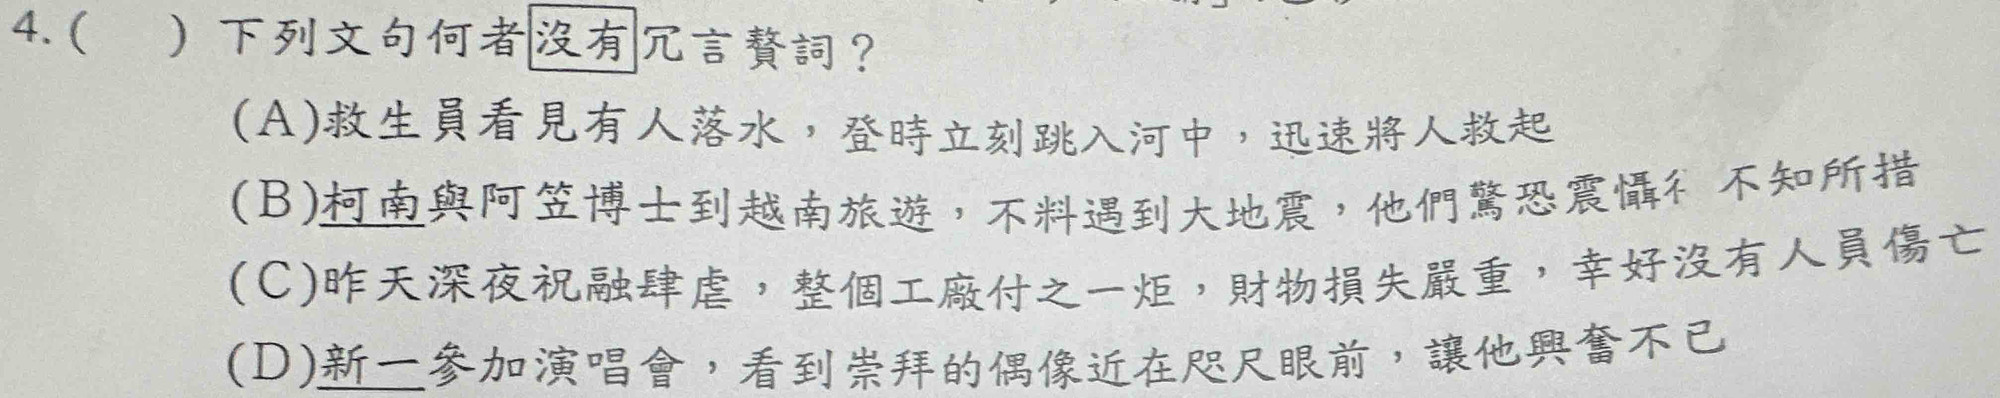 4.(　　)下列文句何者沒有冗言贅詞？
(A)救生員看見有人落水，登時立刻跳入河中，迅速將人救起
(B)柯南與阿笠博士到越南旅遊，不料遇到大地震，他們驚恐震懾 不知所措
(C)昨天深夜祝融肆虐，整個工廠付之一炬，財物損失嚴重，幸好沒有人員傷亡
(D)新一參加演唱會，看到崇拜的偶像近在咫尺眼前，讓他興奮不已